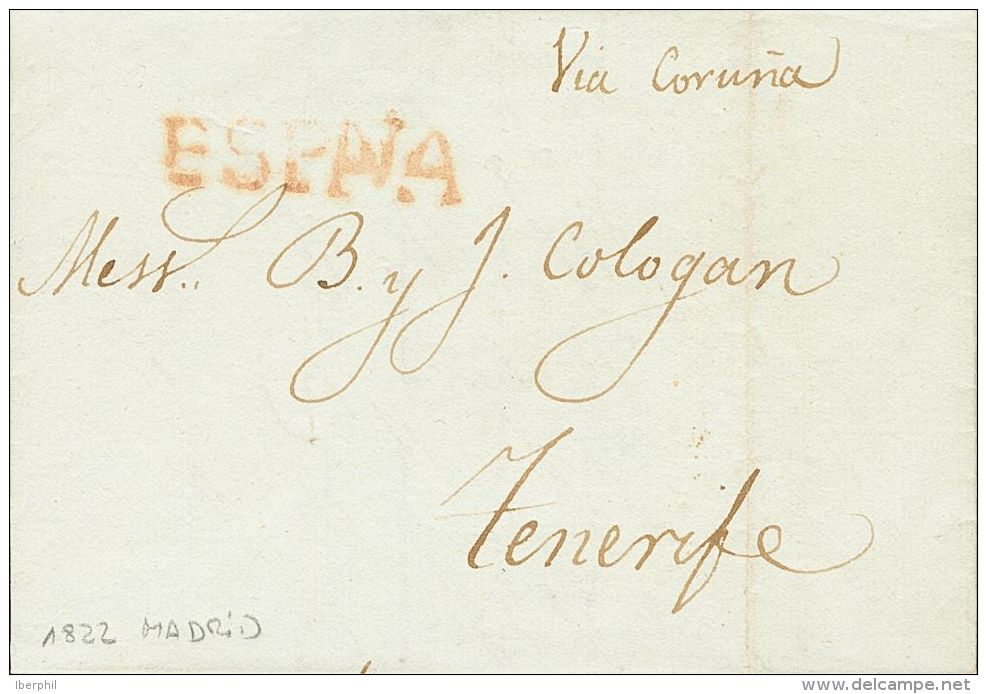 Via Coruña
ESPAÑA
Mess.. B. y J. Cologan
Tenerife
1822 MADRID
Iberphil
delcampe.net